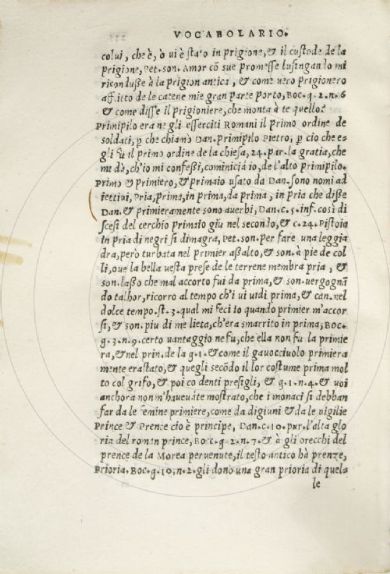 VOCABOLARIO.
colui, che è, ò ui è stato in prigione, & il custode de la
prigione, Pet. son. Amor cō sue promesse lusingando mi
ricondusse à la prigion antica, & come uero prigionero
afflitto de le catene mie gran parte porto, Boc. g. 2. n. 6
& come disse il prigioniere, che monta à te quello?
Primipilo era ne gli esserciti Romani il primo ordine de
soldati, p che chiamò Dan. primipilo Pietro, p cio che e
gli fù il primo ordine de la chiesa, 24. par. la gratia, che
mi dà, ch'io mi confessi, cominciai io, de l'alto primipilo.
Primo & primiero, & primaio usato da Dan. sono nomi ad
iettiui, Pria, prima, in prima, da prima, in pria che disse
Dan. & primieramente sono auerbi, Dan. c. 5. inf. così di
scesi del cerchio primaio giu nel secondo, & c. 24. Pistoia
in pria di negri si dimagra, Pet. son. per fare una leggia
dra, però turbata nel primier assalto, & son. à piè de col
li, oue la bella uesta prese de le terrene membra pria, &
son. lasso che mal accorto fui da prima, & son. uergognā
do talhor, ricorro al tempo ch'i ui uidi prima, & can. nel
dolce tempo. st. 3. qual mi feci io quando primier m'accor
si, & son. piu di me lieta, ch'era smarrito in prima, Boc.
g. 3. n. 9. certo uantaggio ne fu, che ella non fu la primie
ra, & nel prin. de la g. 1. & come il gauocciuolo primiera
mente era stato, & quegli secōdo il lor costume prima mol
to col grifo, & poi co denti presigli, & g. 1. n. 4. & uoi
anchora non m'haueuate mostrato, che i monaci si debban
far da le femine priemere, come da digiuni & da le uigilie
Prince & Prence cio è principe, Dan. c. 10. pur. l'alta glo
ria del roman prince, Boc. g. 2. n. 7. & è gli orecchi del
prence de la Morea peruenute, il testo antico hà prenze,
Prioria. Boc. g. 10. n. 2. gli dono una gran prioria di quelo
le